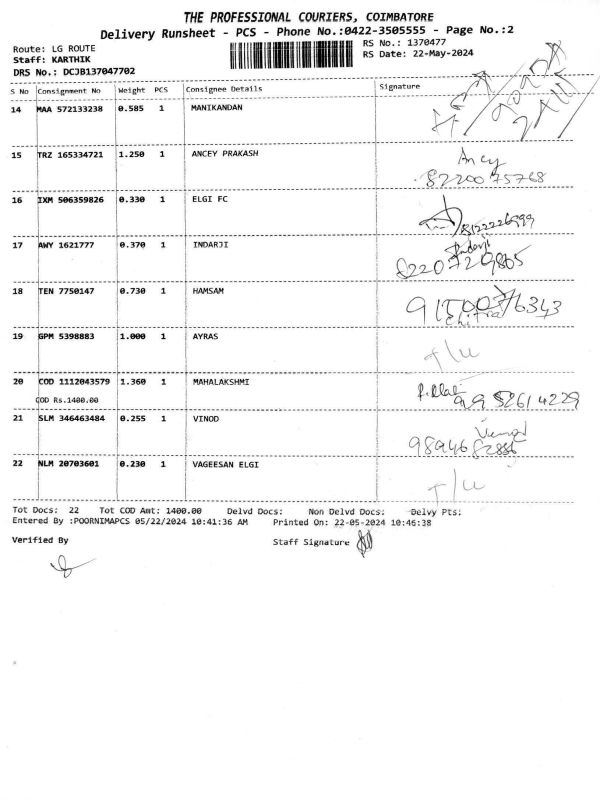 THE PROFESSIONAL COURIERS, COIMBATORE
Delivery Runsheet - PCS - Phone No.:0422-3505555 - Page No.:2
Route: LG ROUTE
RS No.: 1370477
Staff: KARTHIK
RS Date: 22-May-2024
DRS No.: DCJB137047702
S No Consignment No Weight PCS Consignee Details Signature
14 MAA 572133238 0.585 1 MANIKANDAN
15 TRZ 165334721 1.250 1 ANCEY PRAKASH Ancy
8220075768
16 IXM 506359826 0.330 1 ELGI FC 8122226999
17 AWY 1621777 0.370 1 INDARJI Indarji
8220729865
18 TEN 7750147 0.730 1 HAMSAM 9150076343
Chitra
19 GPM 5398883 1.000 1 AYRAS
20 COD 1112043579 1.360 1 MAHALAKSHMI
COD Rs.1400.00
21 SLM 346463484 0.255 1 VINOD Vinod
9894682886
22 NLM 20703601 0.230 1 VAGEESAN ELGI
Tot Docs: 22 Tot COD Amt: 1400.00 Delvd Docs: Non Delvd Docs: Delvy Pts:
Entered By :POORNIMAPCS 05/22/2024 10:41:36 AM Printed On: 22-05-2024 10:46:38
Verified By Staff Signature